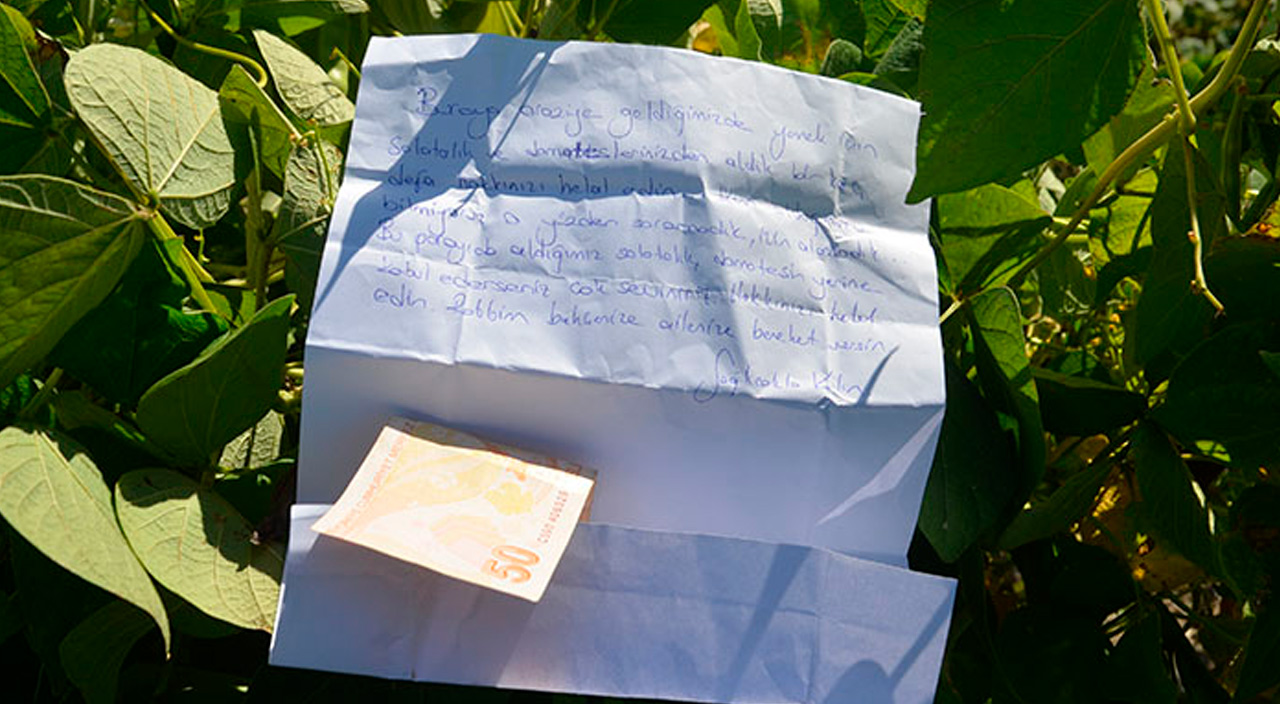 Buraya araziye geldiğimizde yemek için
Salatalık ve domateslerinizden aldık bir kaç
defa hakkınızı helal edin
bilmiyoruz o yüzden soramadık, izin alamadık.
Bu parayıda aldığımız salatalık, domatesin yerine
kabul ederseniz çok seviniriz Hakkınızı helal
edin. Rabbim bahçenize ailenize bereket versin
Sağlıcakla Kalın
50